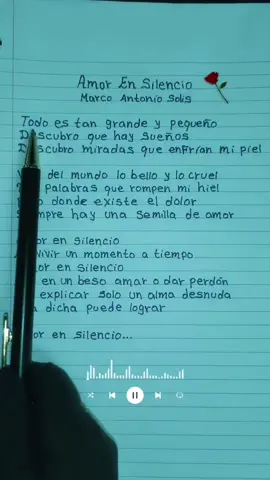 Amor En Silencio
Marco Antonio Solís
Todo es tan grande y pequeño
Descubro que hay sueños
Descubro miradas que enfrían mi piel
del mundo lo bello y lo cruel
palabras que rompen mi hiel
donde existe el dolor
Siempre hay una semilla de amor
Amor en silencio
vivir un momento a tiempo
Amor en silencio
en un beso amar o dar perdón
explicar solo un alma desnuda
dicha puede lograr
Amor en silencio...